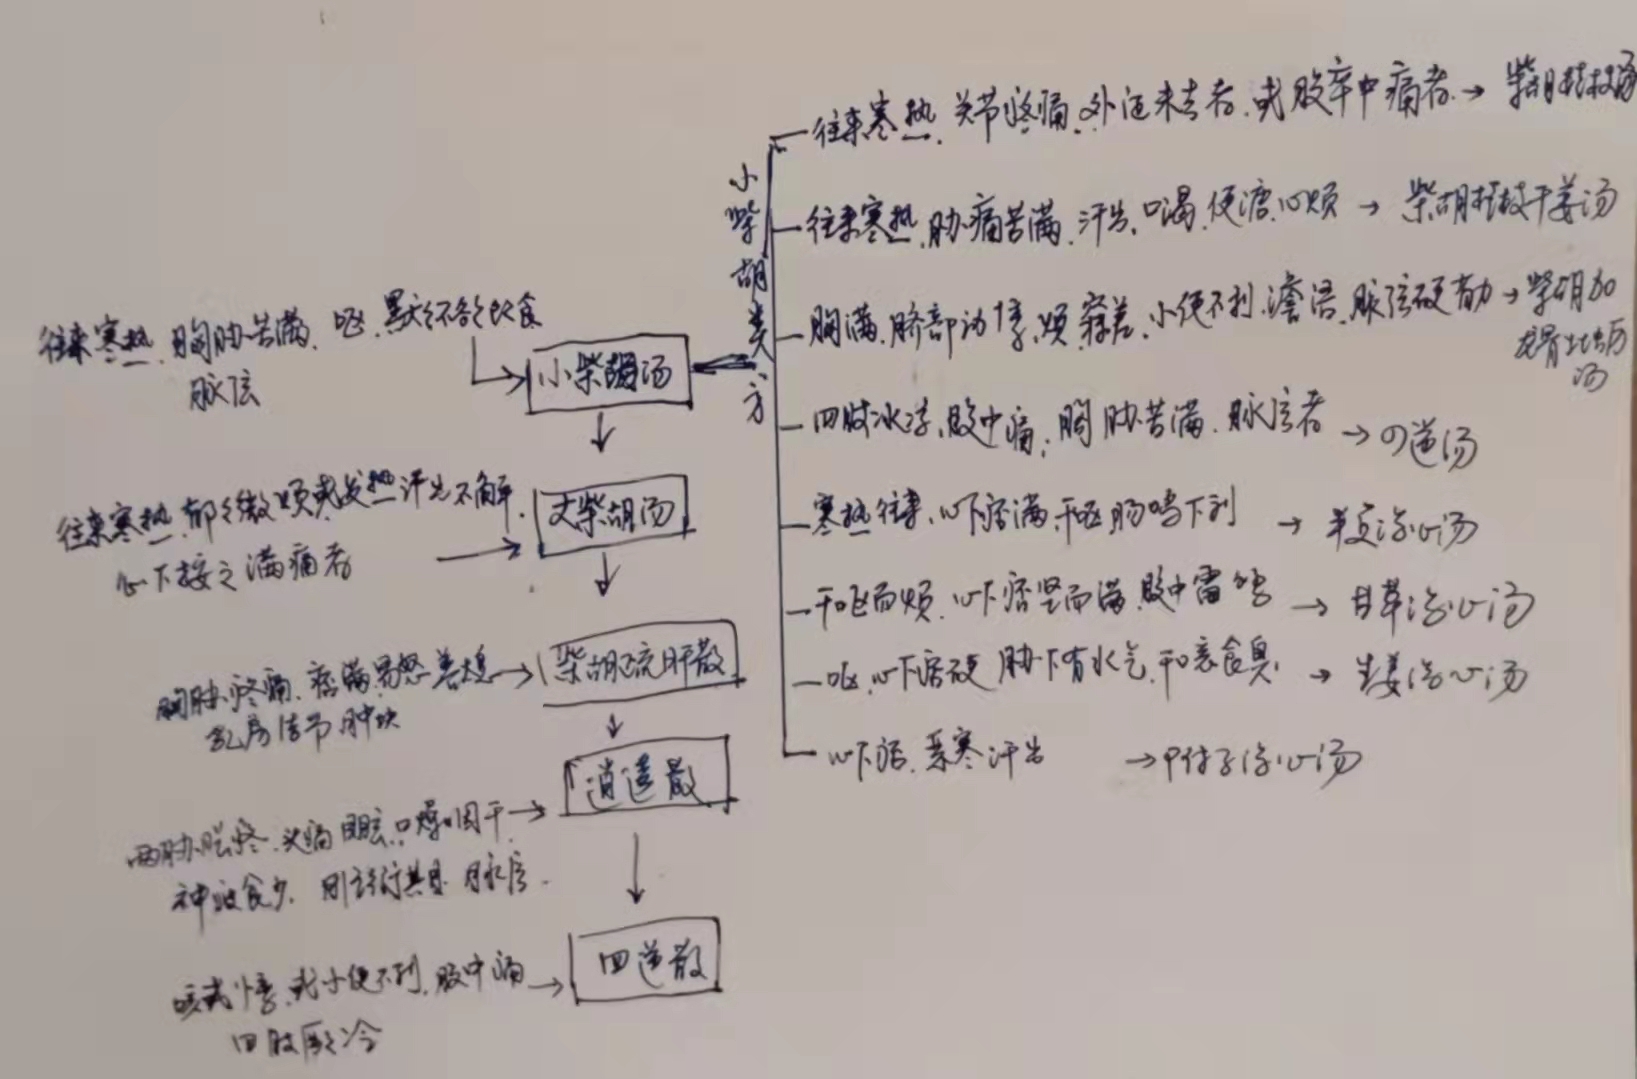 往来寒热、胸胁苦满、呕、默默不欲饮食
脉弦
小柴胡汤
往来寒热、郁郁微烦或发热汗出不解、
心下按之满痛者
大柴胡汤
胸胁疼痛、痞满易怒善太息
乳房结节肿块
柴胡疏肝散
两胁胀疼、头痛目眩、口燥咽干、
神疲食少、脉弦
逍遥散
咳或悸、或小便不利、腹中痛
四肢厥冷
四逆散
小柴胡类方
往来寒热、关节疼痛、外证未去者、或腹卒中痛者→柴胡桂枝汤
往来寒热、胁痛苦满、汗出、口渴、便溏、心烦→柴胡桂枝干姜汤
胸满、脐部动悸、烦、寐差、小便不利、谵语、脉弦硬有力→柴胡加
龙骨牡蛎
汤
四肢冰冷、腹中痛、胸胁苦满、脉弦者→四逆汤
寒热往来、心下痞满、干呕肠鸣下利→半夏泻心汤
干呕而烦、心下痞坚而满、腹中雷鸣→甘草泻心汤
呕、心下痞硬 胁下有水气、干噫食臭→生姜泻心汤
心下痞、恶寒汗出→附子泻心汤